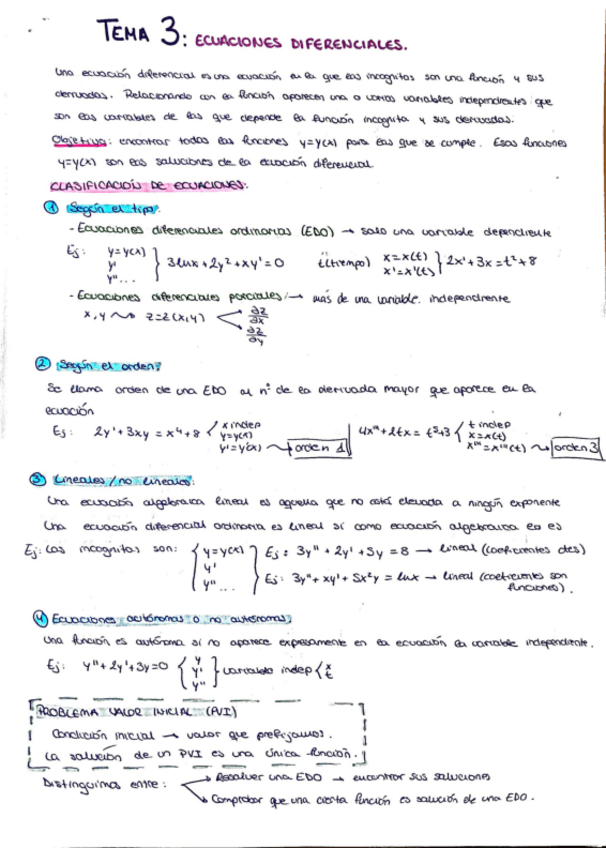 TEMA 3: ECUACIONES DIFERENCIALES.
Una ecuación diferencial es una ecuación en la que las incógnitas son una función y sus
derivadas. Relacionando con la función aparecen una o varias variables independientes que
son las variables de las que depende la función incógnita y sus derivadas.
Objetivo: encontrar todas las funciones y=y(x) para las que se cumple. Esas funciones
y=y(x) son las soluciones de la ecuación diferencial
CLASIFICACIÓN DE ECUACIONES:
① Según el tipo:
- Ecuaciones diferenciales ordinarias (EDO) → solo una variable dependiente
Ej: y=y(x) y' y''... } 3lnx+2y²+xy'=0 t(tiempo) x=x(t) x'=x'(t) } 2x'+3x=t²+8
- Ecuaciones diferenciales parciales → más de una variable independiente
x,y ⇝ z=z(x,y) < ∂z/∂x ∂z/∂y
② Según el orden:
Se llama orden de una EDO al nº de la derivada mayor que aparece en la
ecuación
Ej: 2y'+3xy=x⁴+8 { x indep y=y(x) y'=y'(x) ⇝ orden 1 | 4x'''+2tx=t⁵+3 { t indep x=x(t) x'''=x'''(t) ⇝ orden 3
③ Lineales/no lineales:
Una ecuación algebraica lineal es aquella que no está elevada a ningún exponente
Una ecuación diferencial ordinaria es lineal si como ecuación algebraica lo es
Ej: Las incógnitas son: { y=y(x) y' y''... } Ej: 3y''+2y'+5y=8 → lineal (coeficientes ctes)
Ej: 3y''+xy'+5x²y=lnx → lineal (coeficientes son
funciones).
④ Ecuaciones autónomas o no autónomas:
Una función es autónoma si no aparece expresamente en la ecuación la variable independiente.
Ej: y''+2y'+3y=0 { y y' y'' } variable indep { x t
PROBLEMA VALOR INICIAL (PVI)
Condición inicial → valor que prefijamos.
La solución de un PVI es una única función.
Distinguimos entre: → Resolver una EDO → encontrar sus soluciones
→ Comprobar que una cierta función es solución de una EDO.